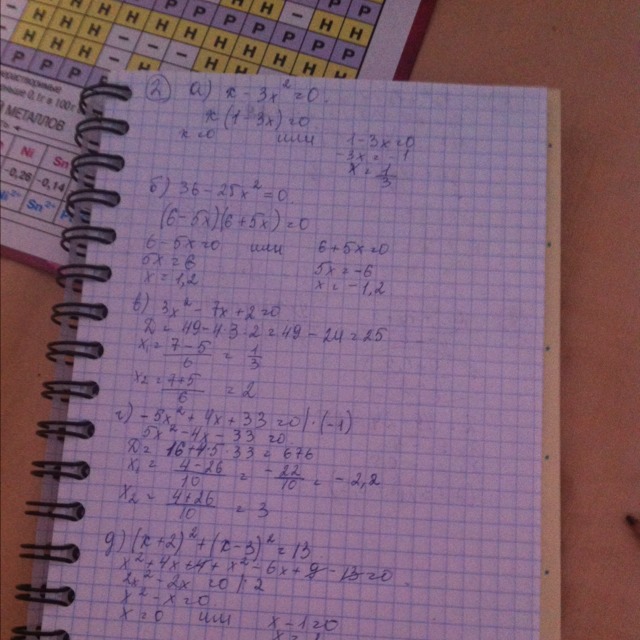 МЕТАЛЛОВ
Ni Sn
-0,26 -0,14
② а) x - 3x² = 0
x(1 - 3x) = 0
x = 0 или 1 - 3x = 0
3x = 1
x = 1/3
б) 36 - 25x² = 0
(6 - 5x)(6 + 5x) = 0
6 - 5x = 0 или 6 + 5x = 0
5x = 6 5x = -6
x = 1,2 x = -1,2
в) 3x² - 7x + 2 = 0
D = 49 - 4·3·2 = 49 - 24 = 25
x₁ = (7 - 5)/6 = 1/3
x₂ = (7 + 5)/6 = 2
г) -5x² + 4x + 33 = 0 | ·(-1)
5x² - 4x - 33 = 0
D = 16 + 4·5·33 = 676
x₁ = (4 - 26)/10 = -22/10 = -2,2
x₂ = (4 + 26)/10 = 3
д) (x + 2)² + (x - 3)² = 13
x² + 4x + 4 + x² - 6x + 9 - 13 = 0
2x² - 2x = 0 | :2
x² - x = 0
x = 0 или x - 1 = 0
x = 1